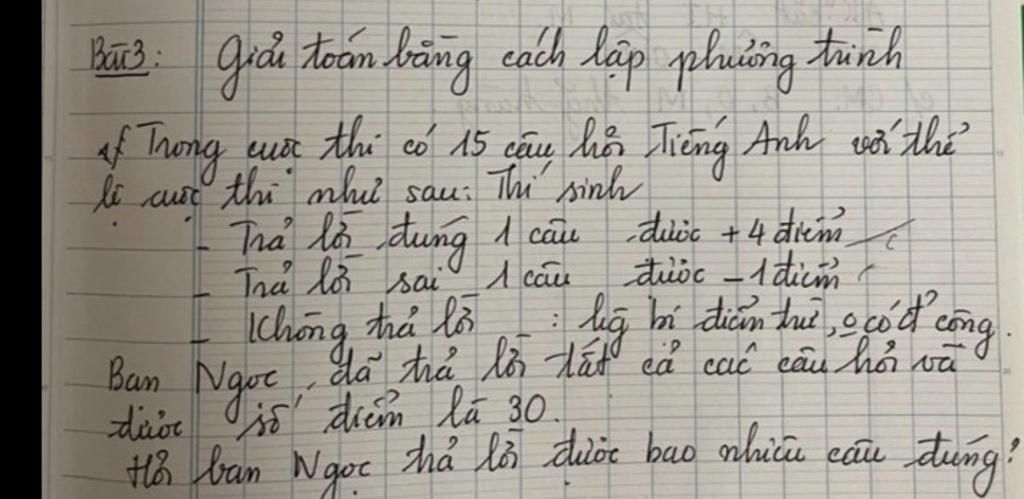 Bài 3: Giải toán bằng cách lập phương trình
a/ Trong cuộc thi có 15 câu hỏi Tiếng Anh với thể
lệ cuộc thi như sau: Thí sinh
- Trả lời đúng 1 câu được +4 điểm
- Trả lời sai 1 câu được -1 điểm
- Không trả lời : kg bị điểm trừ, o có đ cộng.
Bạn Ngọc, đã trả lời tất cả các câu hỏi và
được số điểm là 30.
Hỏi bạn Ngọc trả lời được bao nhiêu câu đúng?